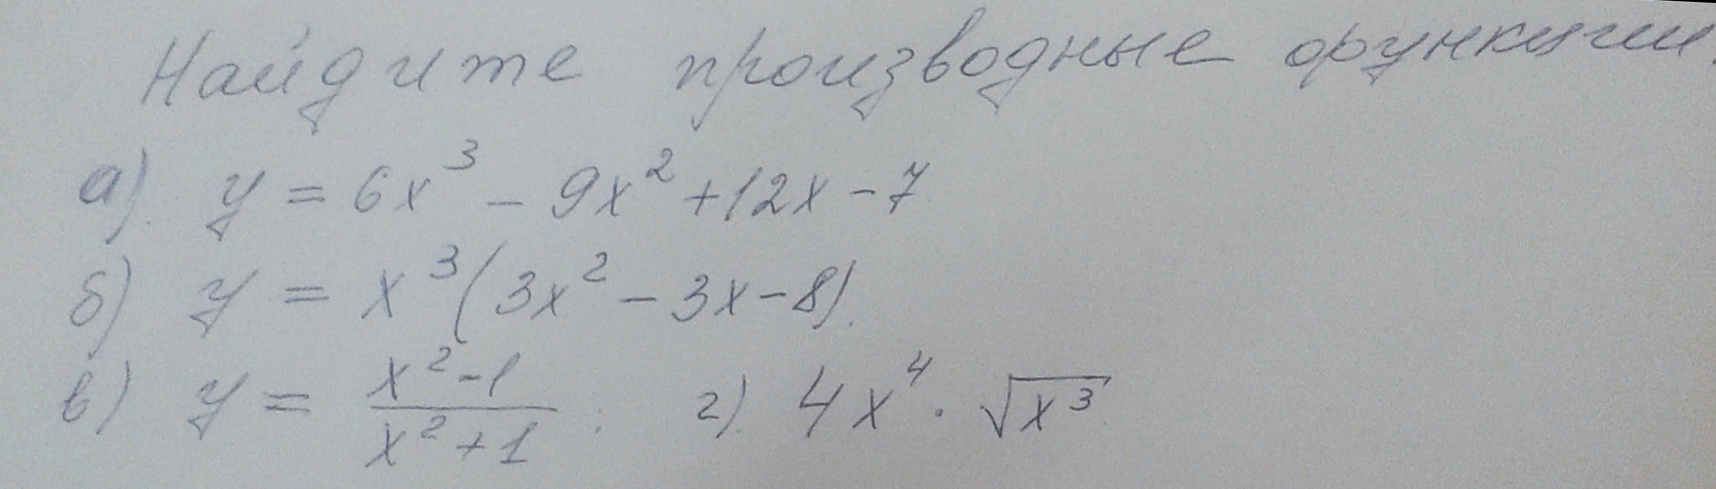 Найдите производные функции.
а). y = 6x³ - 9x² + 12x - 7
б) y = x³(3x² - 3x - 8).
в) y = (x² - 1)/(x² + 1); г). 4x⁴ · √(x³)